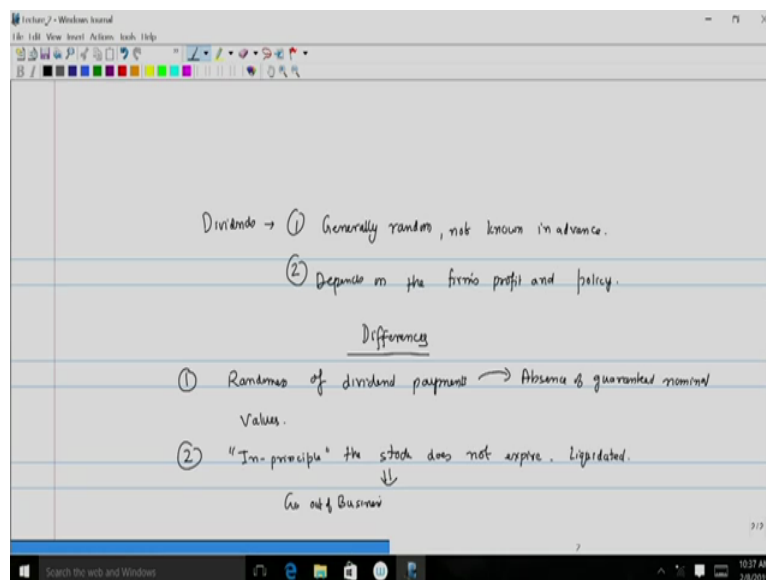 Lecture_7 - Windows Journal
File Edit View Insert Actions Tools Help
Dividends → ① Generally random, not known in advance.
② Depends on the firm's profit and policy.
Differences
① Randomness of dividend payments → Absence of guaranteed nominal
values.
② "In-principle" the stock does not expire. Liquidated.
⇓
Go out of Business
7
Search the web and Windows
10:37 AM